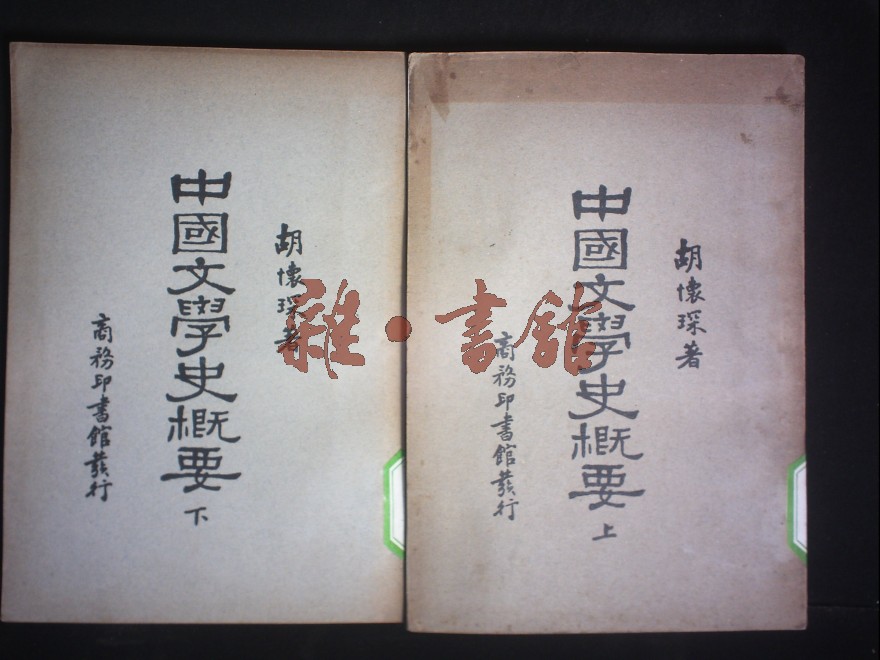 胡懷琛著
中國文學史概要 上
商務印書館發行
胡懷琛著
中國文學史概要 下
商務印書館發行
雜·書館